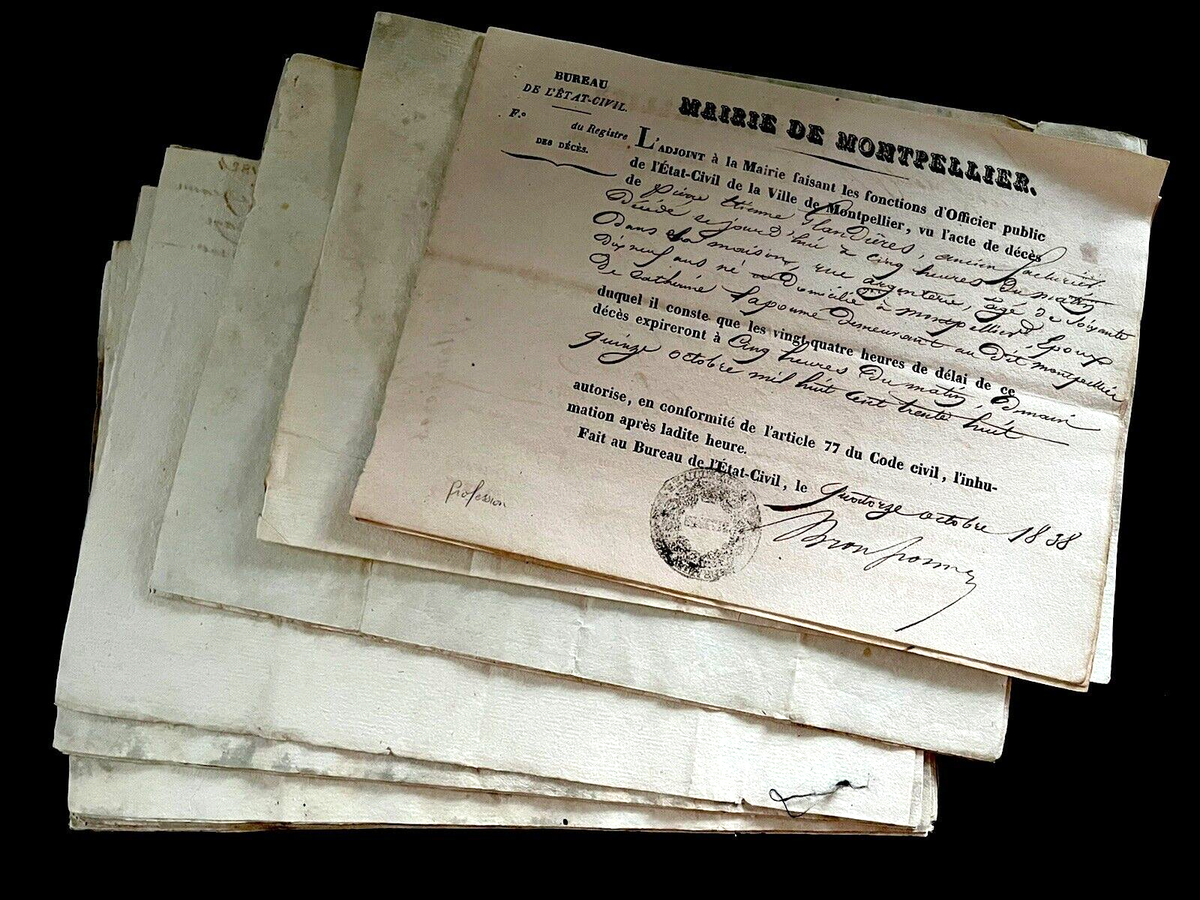 BUREAU
DE L'ÉTAT-CIVIL.
F.º
du Registre
DES DÉCÈS.
MAIRIE DE MONTPELLIER.
L'ADJOINT à la Mairie faisant les fonctions d'Officier public
de l'État-Civil de la Ville de Montpellier, vu l'acte de décès
de Pierre Etienne Glandières, ancien
Décédé ce jourd'hui à cinq heures du matin
Dans sa maison, rue argenterie, âgé de soixante
Dix neuf ans né & Domicilié à montpellier, Epoux
De Catherine Lapoume demeurant au Dit montpellier
duquel il conste que les vingt-quatre heures de délai de ce
décès expireront à Cinq heures Du matin Demain
quinze octobre mil huit cent trente huit
autorise, en conformité de l'article 77 du Code civil, l'inhu-
mation après ladite heure.
Fait au Bureau de l'État-Civil, le quatorze octobre 1838
profession